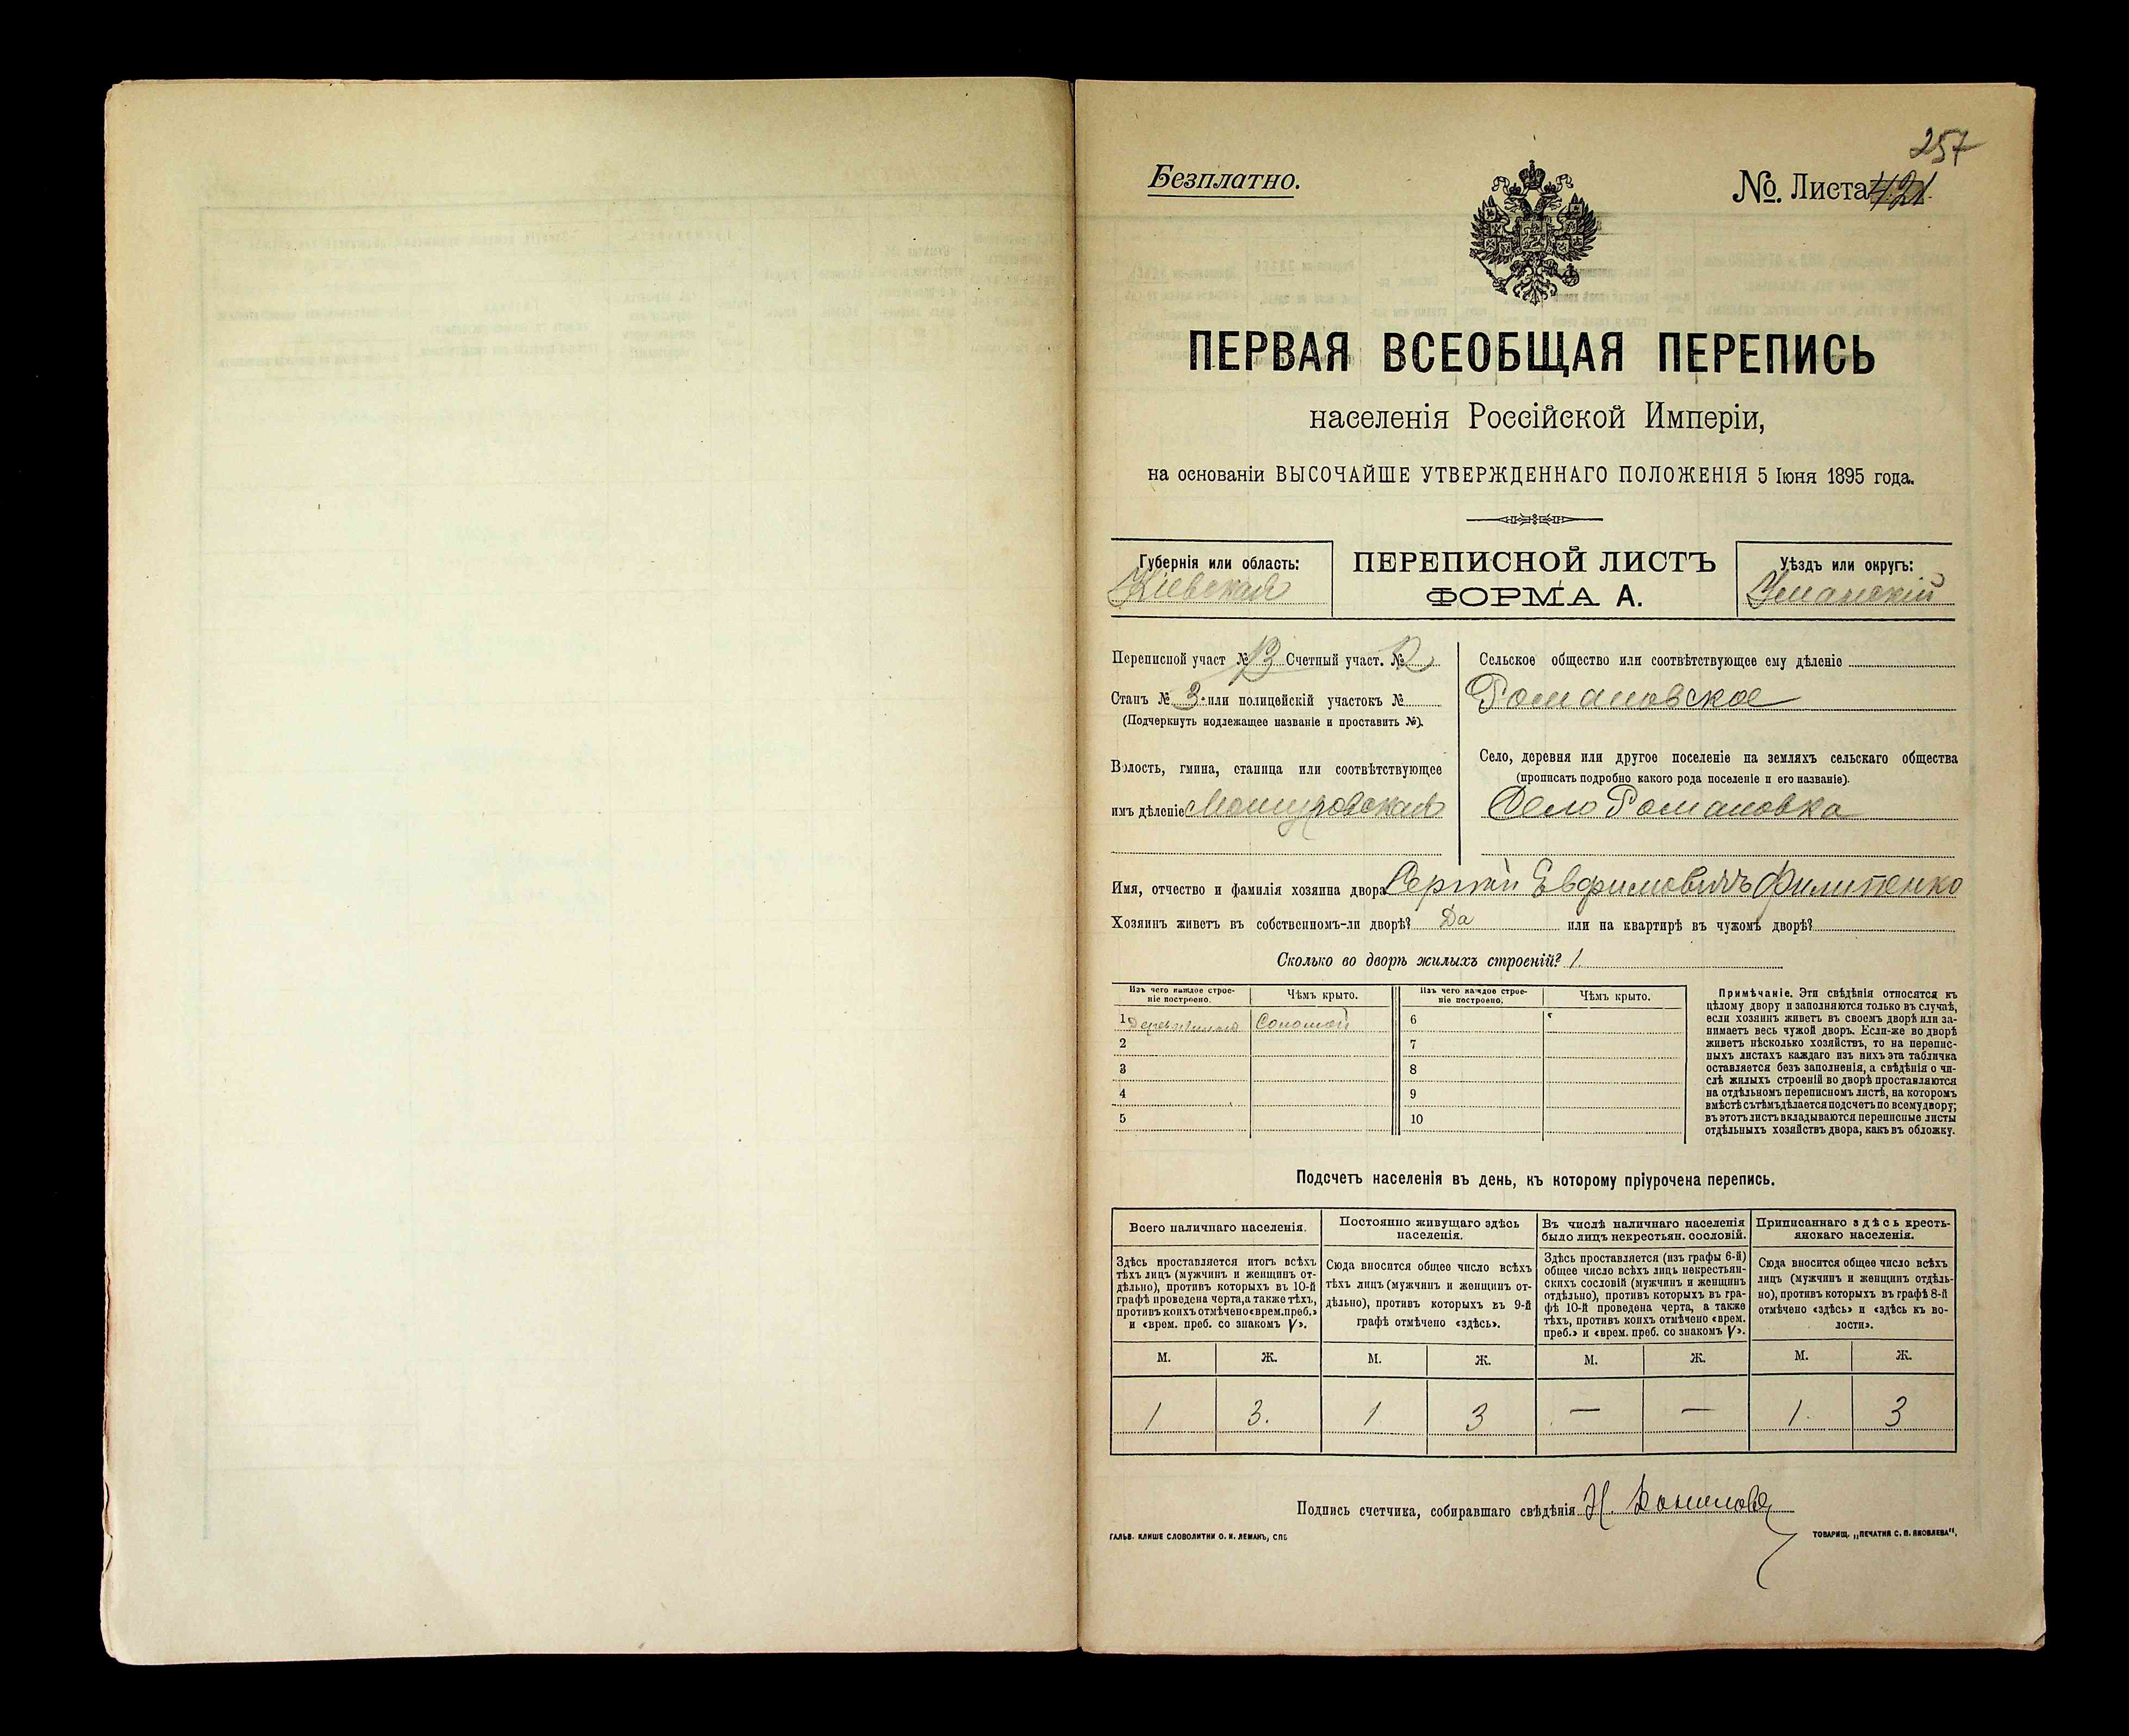 257
Безплатно.
№. Листа 421.
ПЕРВАЯ ВСЕОБЩАЯ ПЕРЕПИСЬ
населенія Россійской Имперіи,
на основаніи ВЫСОЧАЙШЕ УТВЕРЖДЕННАГО ПОЛОЖЕНІЯ 5 Іюня 1895 года.
Губернія или область:
Кіевская
ПЕРЕПИСНОЙ ЛИСТЪ
ФОРМА А.
Уѣздъ или округъ:
Уманскій
Переписной участ № 13 Счетный участ. № 2
Станъ № 3 или полицейскій участокъ №
(Подчеркнуть подлежащее названіе и проставить №).
Волость, гмина, станица или соотвѣтствующее
имъ дѣленіе Машуровская
Сельское общество или соотвѣтствующее ему дѣленіе
Романовское
Село, деревня или другое поселеніе на земляхъ сельскаго общества
(прописать подробно какого рода поселеніе и его названіе).
Село Романовка
Имя, отчество и фамилія хозяина двора Сергѣй Евфимовичъ Филипенко
Хозяинъ живетъ въ собственномъ-ли дворѣ? Да или на квартирѣ въ чужомъ дворѣ?
Сколько во дворѣ жилыхъ строеній? 1.
Изъ чего каждое строе-
ніе построено.
Чѣмъ крыто.
Изъ чего каждое строе-
ніе построено.
Чѣмъ крыто.
1 Соломой 6
2 7
3 8
4 9
5 10
Примѣчаніе. Эти свѣдѣнія относятся къ
цѣлому двору и заполняются только въ случаѣ,
если хозяинъ живетъ въ своемъ дворѣ или за-
нимаетъ весь чужой дворъ. Если-же во дворѣ
живетъ нѣсколько хозяйствъ, то на перепис-
ныхъ листахъ каждаго изъ нихъ эта табличка
оставляется безъ заполненія, а свѣдѣнія о чи-
слѣ жилыхъ строеній во дворѣ проставляются
на отдѣльномъ переписномъ листѣ, на которомъ
вмѣстѣ съ тѣмъ дѣлается подсчетъ по всему двору;
въ этотъ листъ вкладываются переписные листы
отдѣльныхъ хозяйствъ двора, какъ въ обложку.
Подсчетъ населенія въ день, къ которому пріурочена перепись.
Всего наличнаго населенія.
Здѣсь проставляется итогъ всѣхъ
тѣхъ лицъ (мужчинъ и женщинъ от-
дѣльно), противъ которыхъ въ 10-й
графѣ проведена черта, а также тѣхъ,
противъ коихъ отмѣчено «врем. преб.»
и «врем. преб. со знакомъ V».
Постоянно живущаго здѣсь
населенія.
Сюда вносится общее число всѣхъ
тѣхъ лицъ (мужчинъ и женщинъ от-
дѣльно), противъ которыхъ въ 9-й
графѣ отмѣчено «здѣсь».
Въ числѣ наличнаго населенія
было лицъ некрестьян. сословій.
Здѣсь проставляется (изъ графы 6-й)
общее число всѣхъ лицъ некрестьян-
скихъ сословій (мужчинъ и женщинъ
отдѣльно), противъ которыхъ въ гра-
фѣ 10-й проведена черта, а также
тѣхъ, противъ коихъ отмѣчено «врем.
преб.» и «врем. преб. со знакомъ V».
Приписаннаго здѣсь кресть-
янскаго населенія.
Сюда вносится общее число всѣхъ
лицъ (мужчинъ и женщинъ отдѣль-
но), противъ которыхъ въ графѣ 8-й
отмѣчено «здѣсь» и «здѣсь къ во-
лости».
М. Ж. М. Ж. М. Ж. М. Ж.
1 3. 1 3 — — 1. 3
Подпись счетчика, собиравшаго свѣдѣнія Н.
ГАЛЬВ. КЛИШЕ СЛОВОЛИТНИ О. И. ЛЕМАНЪ, СПБ
ТОВАРИЩ. „ПЕЧАТНЯ С. П. ЯКОВЛЕВА“.